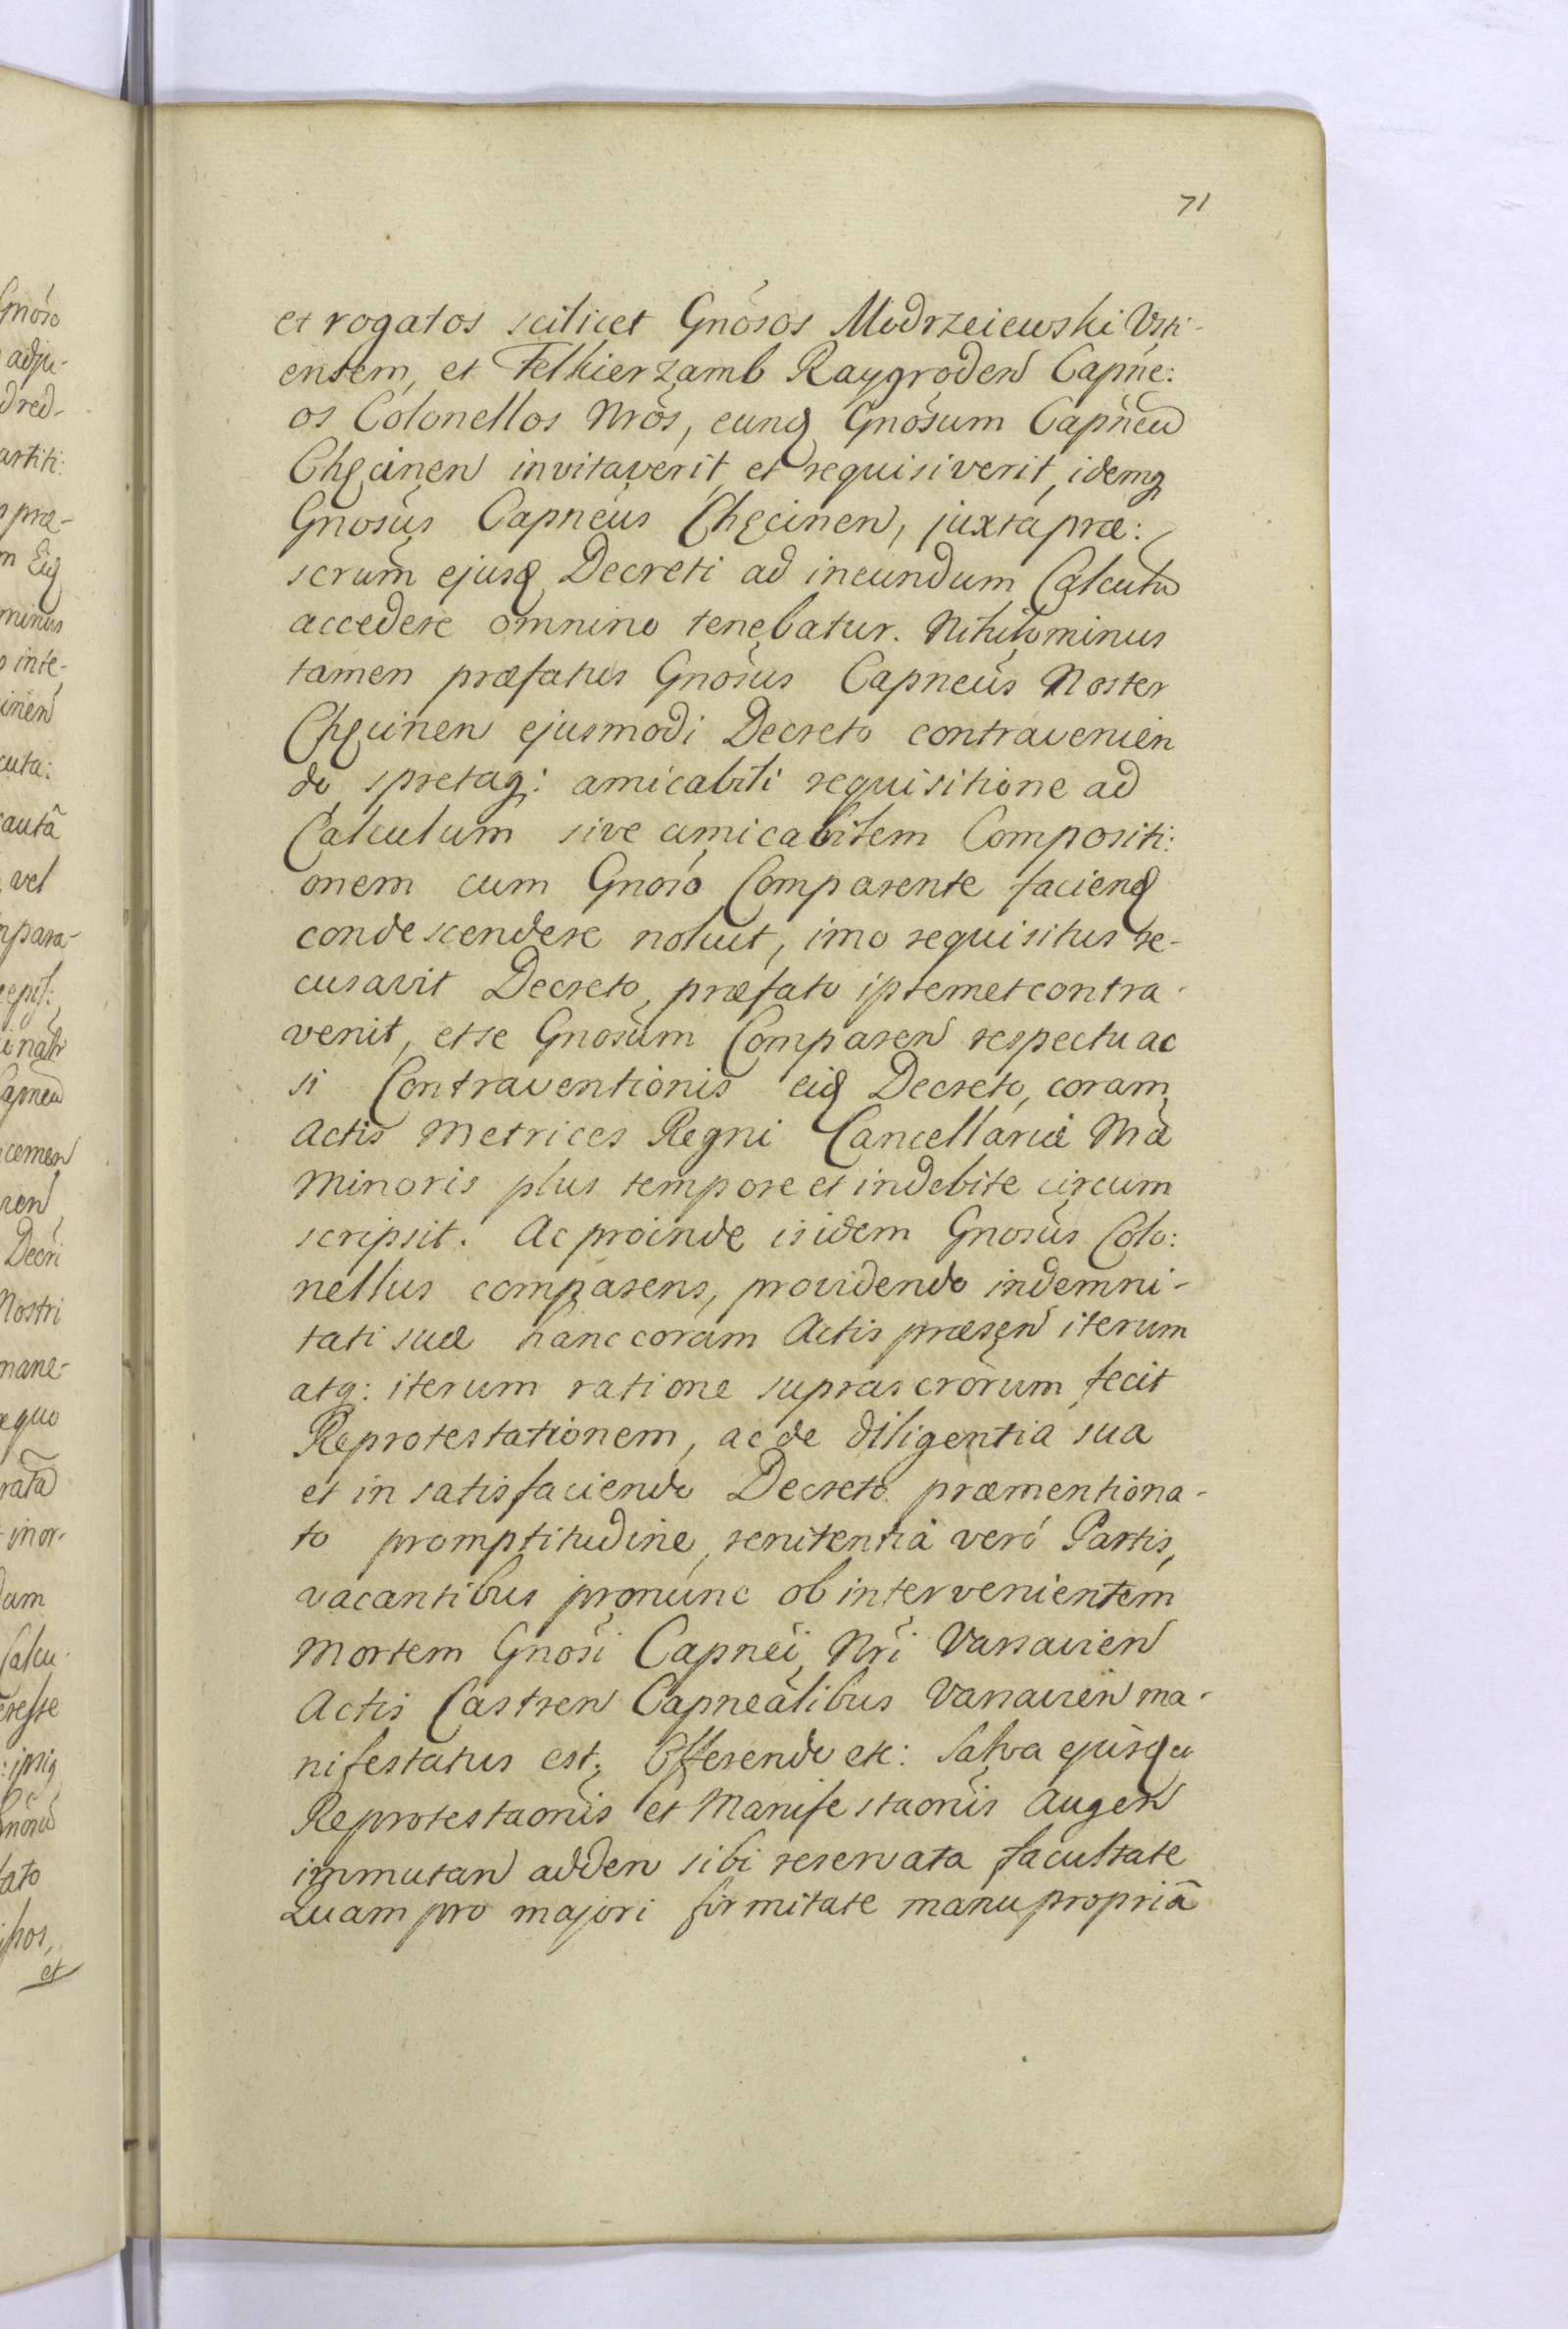 71
et rogatos scilicet Gnősos Modrzeiewski Usti-
ensem, et Felkierzamb Raygroden Capne:
os Colonellos Nrős, eunq Gnősum Capneu
Chęcinen invitaverit et requisiverit, idemq
Gnosus Capneus Chęcinen, juxta præ:
scrum ejusq Decreti ad ineundum Calculu
accedere omnino tenebatur. Nihilominus
tamen præfatus Gnosus Capneus Noster
Chęcinen ejusmodi Decreto contravenien
do spretaq: amicabili requisitione ad
Calculum sive amicabilem Compositi:
onem cum Gnoso Comparente faciend
condescendere noluit, imo requisitus re-
cusavit Decreto præfato ipsemet contra-
venit, et se Gnosum Comparen respectu ac
si Contraventionis eid Decreto, coram
Actis Metrices Regni Cancellariæ Mae
Minoris plus tempore et indebite circum
scripsit. Ac proinde isidem Gnosus Colo:
nellus comparens, providendo indemni-
tati suæ hanc coram Actis præsen iterum
atq: iterum ratione suprascrorum fecit
Reprotestationem, ac de diligentia sua
et in satisfaciendo Decreto præmentiona-
to promptitudine, renitentiâ veró Partis,
vacantibus pronunc ob intervenientem
Mortem Gnosi Capnei Nri Varsavien
Actis Castren Capnealibus Varsavien ma-
nifestatus est. Offerendo etc: Salva ejusqu
Reprotestaonis et Manifestaonis Augen
immutan adden sibi reservata facultate
Quam pro majori firmitate manu propriâ
Gnoso
adju-
dred-
artiti:
præ-
m Eiq
minus
inte-
inen
cuta:
cautâ
vel
mpara-
Capneu
ren
Decri
Nostri
mane-
equo
inor-
dam
Calcu-
eresse
ipsiq
Gnosu
lato
ipsos,
et